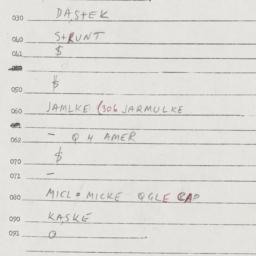 030 DASTEK
040 STRUNT
041 $
$
050
060 JAMLKE (306 JARMULKE
062 - Q 4 AMER
070 $
071 -
080 MICL = MICKE QGLE CAP
090 KASKE
091 0